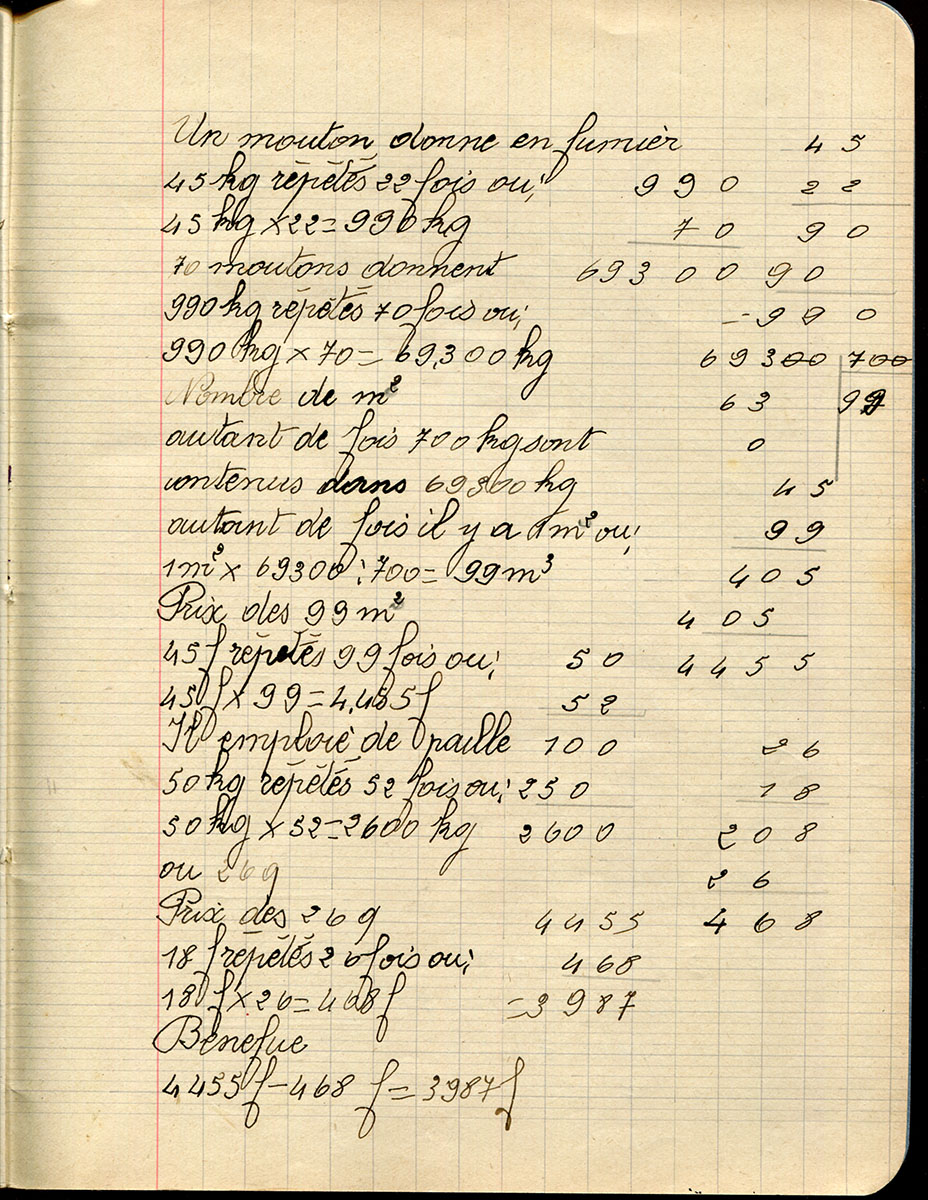 Un mouton donne en fumier 45
45 kg répétés 22 fois ou; 990 22
45 kg x 22 = 990 kg 70 90
70 moutons donnent 69300 90
990 kg répétés 70 fois ou; = 990
990 kg x 70 = 69,300 kg 69300 700
Nombre de m² 63 99
autant de fois 700 kg sont 0
contenus dans 69300 kg 45
autant de fois il y a 1m² ou; 99
1m² x 69300 : 700 = 99 m³ 405
Prix des 99 m² 405
45 f répétés 99 fois ou; 50 4455
45 f x 99 = 4,455 f 52
Il emploie de paille 100 26
50 kg répétés 52 fois ou; 250 18
50 kg x 52 = 2600 kg 2600 208
ou 26 q 26
Prix des 26 q 4455 468
18 f répétés 26 fois ou; 468
18 f x 26 = 468 f = 3987
Bénefice
4455 f - 468 f = 3987 f